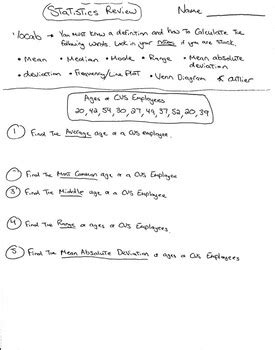 Statistics Review Name
Vocab → You must know a definition and how to calculate the
following words. Look in your notes if you are stuck.
• Mean • Median • Mode • Range • Mean absolute
deviation
• deviation • Frequency/Line Plot • Venn Diagram * outlier
Ages of CVS Employees
20, 42, 54, 30, 27, 49, 37, 52, 20, 39
1 Find the Average age of a CVS employee.
2 Find the Most Common age of a CVS Employee
3 Find the Middle age of a CVS Employee
4 Find the Range of ages of CVS Employees.
5 Find the Mean Absolute Deviation of ages of CVS Employees